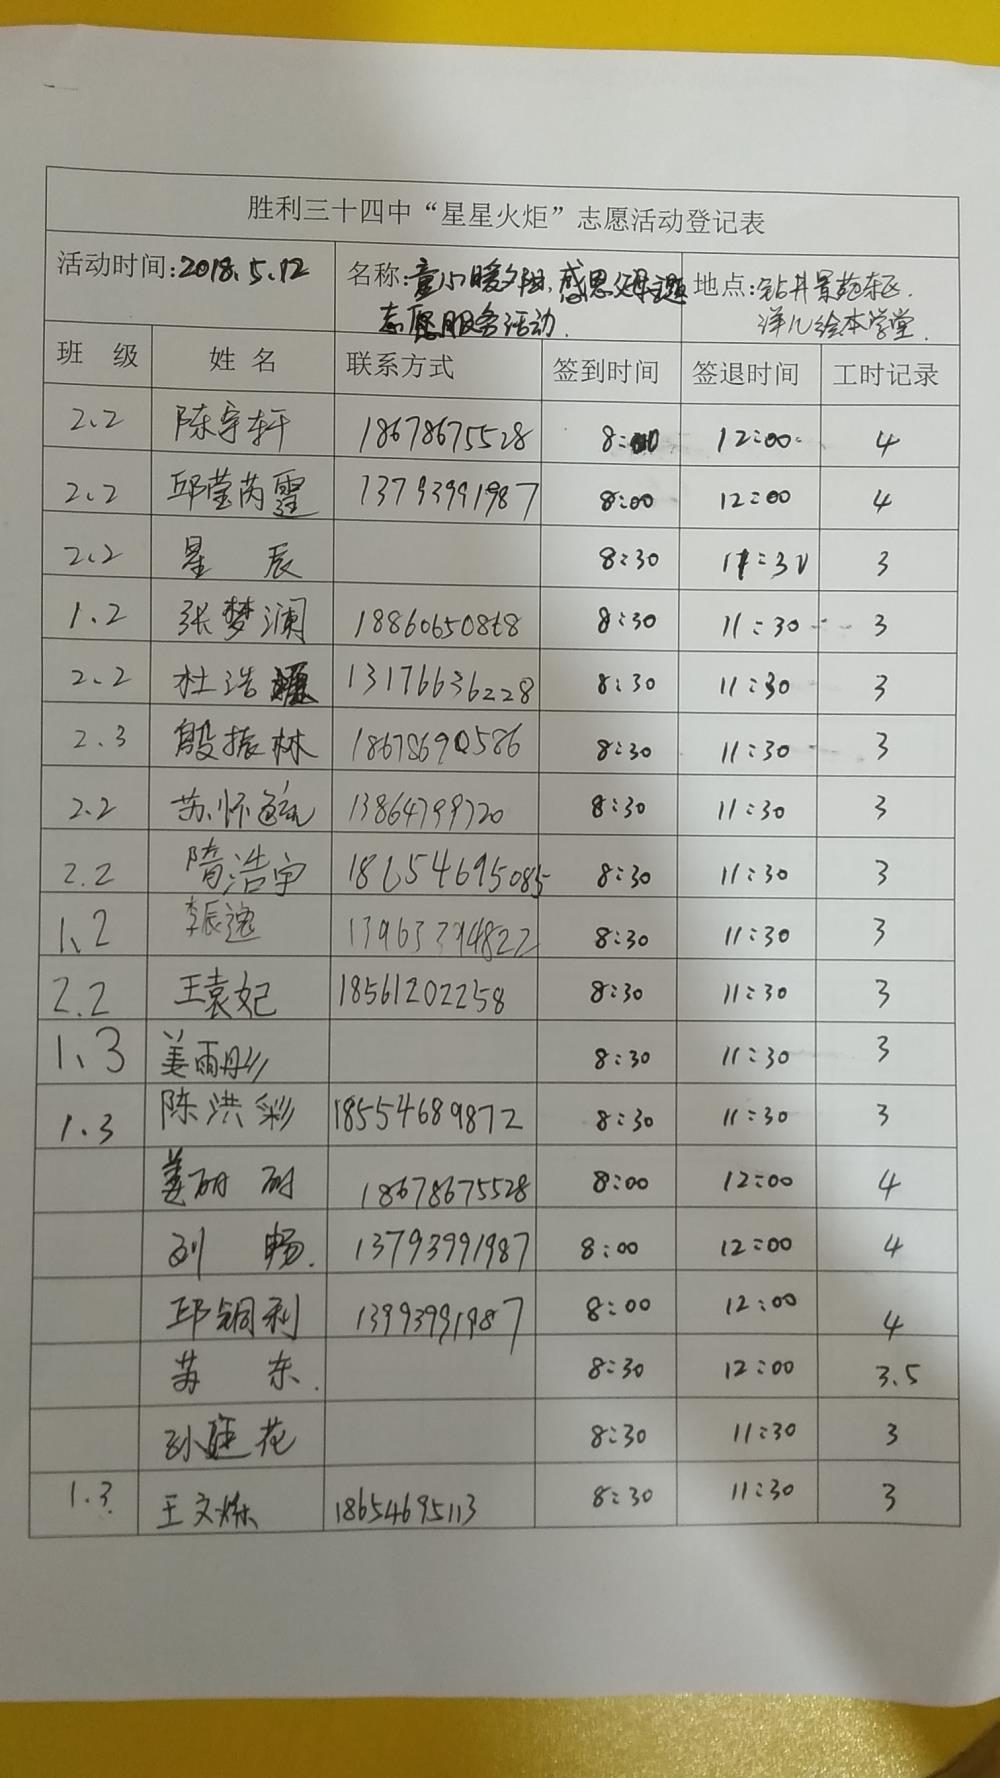 胜利三十四中“星星火炬”志愿活动登记表
活动时间:2018.5.12 名称:童心暖夕阳,感恩父母主题 地点:钻井景苑东区.
志愿服务活动. 洋儿绘本学堂.
班 级 姓 名 联系方式 签到时间 签退时间 工时记录
2.2 陈宇轩 18678675528 8:00 12:00 4
2.2 邱莹芮霆 13793991987 8:00 12:00 4
2.2 星 辰 8:30 11:30 3
1.2 张梦澜 18860650868 8:30 11:30 3
2.2 杜浩 13176636228 8:30 11:30 3
2.3 殷振林 18678690586 8:30 11:30 3
2.2 苏怀 13864799720 8:30 11:30 3
2.2 隋浩宇 18654695085 8:30 11:30 3
1、2 李辰逸 13963394822 8:30 11:30 3
2.2 王袁妃 18561202258 8:30 11:30 3
1、3 姜雨彤 8:30 11:30 3
1.3 陈洪彩 18554689872 8:30 11:30 3
姜 18678675528 8:00 12:00 4
刘 畅. 13793991987 8:00 12:00 4
邱铜利 13993991987 8:00 12:00 4
苏 东. 8:30 12:00 3.5
孙莲花 8:30 11:30 3
1.3. 王文烁 18654695113 8:30 11:30 3